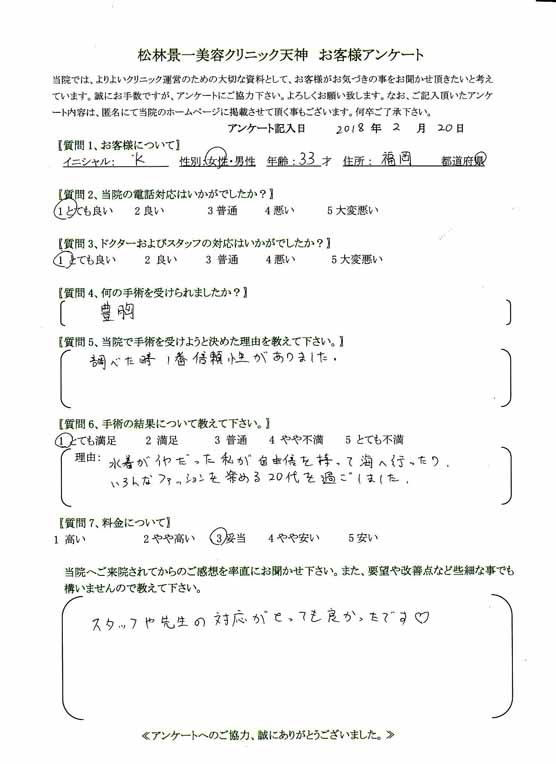 松林景一美容クリニック天神 お客様アンケート
当院では、よりよいクリニック運営のための大切な資料として、お客様がお気づきの事をお聞かせ頂きたいと考え
ています。誠にお手数ですが、アンケートにご協力下さい。よろしくお願い致します。なお、ご記入頂いたアンケ
ート内容は、匿名にて当院のホームページに掲載させて頂く事もございます。何卒ご了承下さい。
アンケート記入日 2018 年 2 月 20 日
〖質問1、お客様について〗
イニシャル: K 性別:女性・男性 年齢:33 才 住所: 福岡 都道府県
〖質問2、当院の電話対応はいかがでしたか?〗
1 とても良い 2 良い 3 普通 4 悪い 5 大変悪い
〖質問3、ドクターおよびスタッフの対応はいかがでしたか?〗
1 とても良い 2 良い 3 普通 4 悪い 5 大変悪い
〖質問4、何の手術を受けられましたか?〗
豊胸
〖質問5、当院で手術を受けようと決めた理由を教えて下さい。〗
調べた時 1番信頼性がありました。
〖質問6、手術の結果について教えて下さい。〗
1 とても満足 2 満足 3 普通 4 やや不満 5 とても不満
理由: 水着がイヤだった私が自由信を持って海へ行ったり、
いろんなファッションを楽める20代を過ごしました。
〖質問7、料金について〗
1 高い 2 やや高い 3 妥当 4 やや安い 5 安い
当院へご来院されてからのご感想を率直にお聞かせ下さい。また、要望や改善点など些細な事でも
構いませんので教えて下さい。
スタッフや先生の対応がとっても良かったです♡
≪アンケートへのご協力、誠にありがとうございました。≫